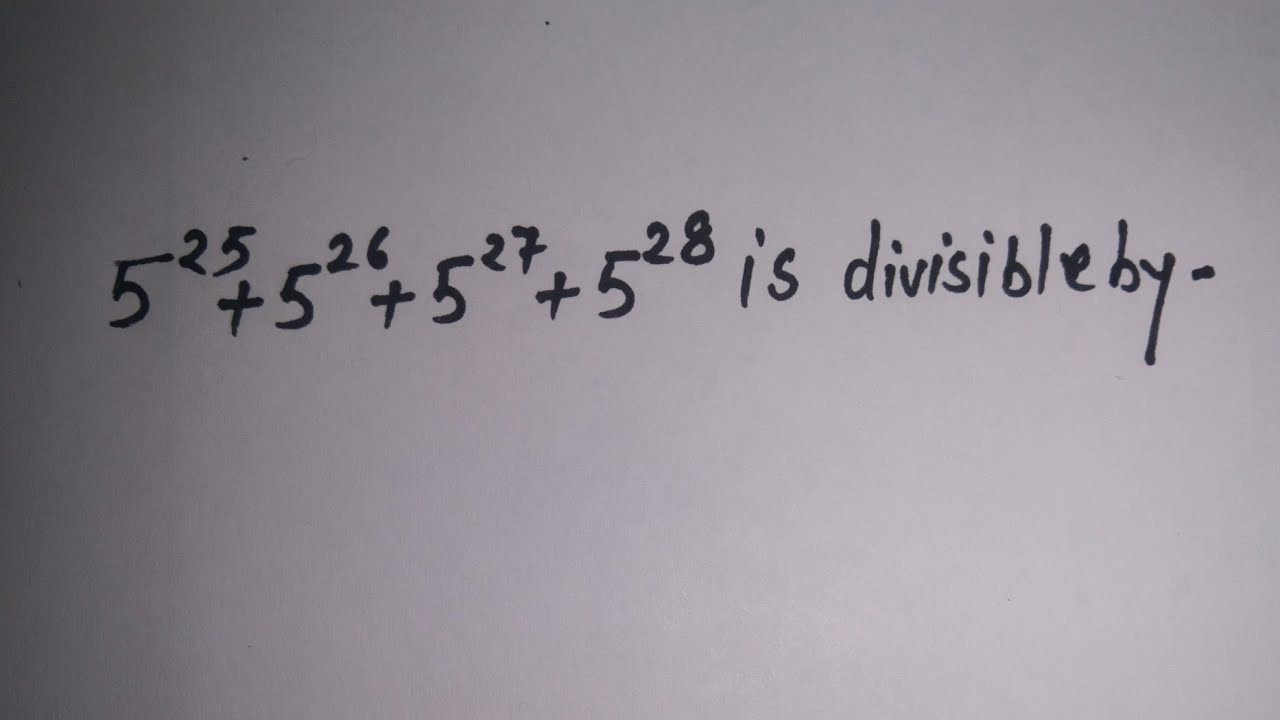 5²⁵+5²⁶+5²⁷+5²⁸ is divisible by-